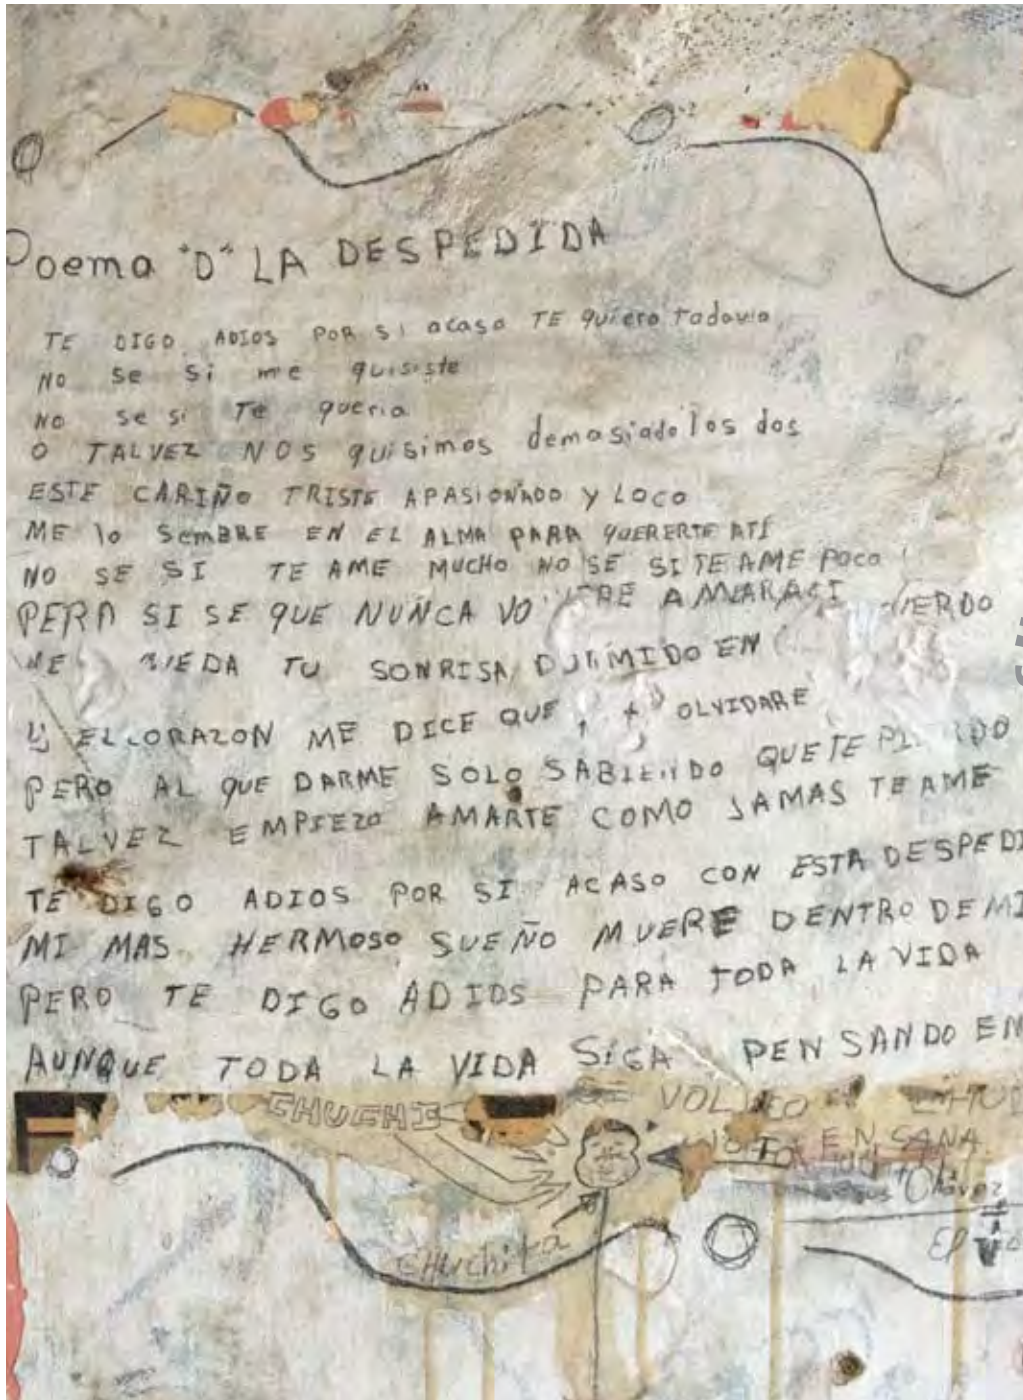 Poema "D" LA DESPEDIDA
TE DIGO ADIOS POR SI acaso TE quiero todavia
NO se si me quisiste
NO se si Te queria
O TALVEZ NOS quisimos demasiado los dos
ESTE CARIÑO TRISTE APASIONADO Y LOCO
ME lo SEMBRE EN EL ALMA PARA QUERERTE ATI
NO SE SI TE AME MUCHO NO SE SI TE AME POCO
PERO SI SE QUE NUNCA AMAR
TU SONRISA EN
y EL CORAZON ME DICE QUE OLVIDARE
PERO AL QUE DARME SOLO SABIENDO QUE TE
TALVEZ EMPIEZO AMARTE COMO JAMAS TE AME
TE DIGO ADIOS POR SI ACASO CON ESTA DESPEDI
MI MAS HERMOSO SUEÑO MUERE DENTRO DE MI
PERO TE DIGO ADIOS PARA TODA LA VIDA
AUNQUE TODA LA VIDA SIGA PENSANDO EN
CHUCHI
EN SANA
Chavez
CHuchita
El